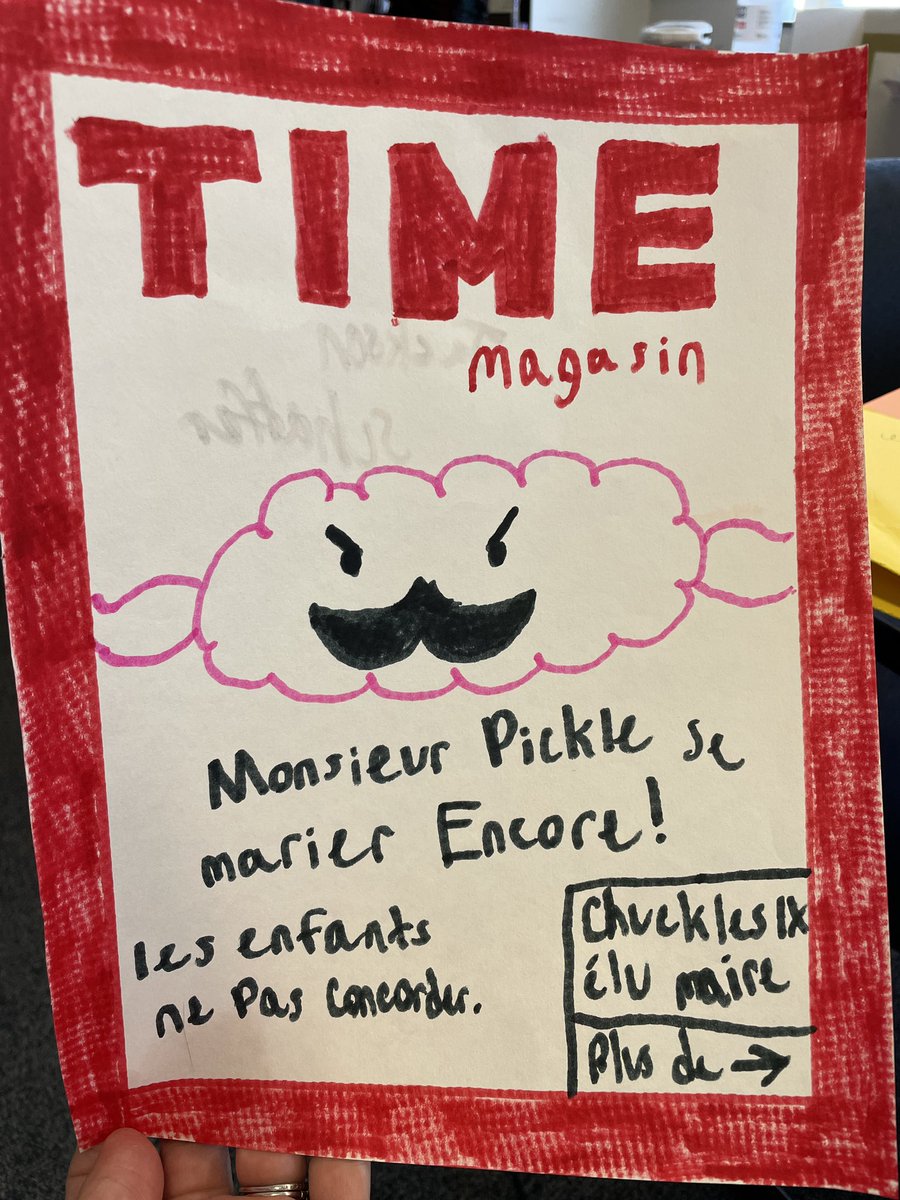 TIME
magasin
Monsieur Pickle se
marier Encore!
les enfants
ne Pas Concorder.
Chuckles IX
élu maire
Plus de →